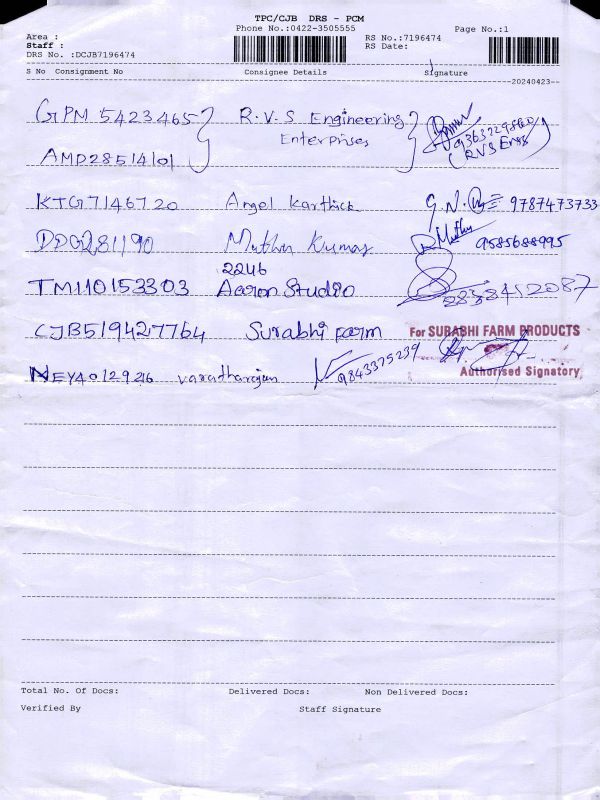 TPC/CJB DRS - PCM
Phone No.:0422-3505555 Page No.:1
Area : RS No.:7196474
Staff : RS Date:
DRS No. :DCJB7196474
S No Consignment No Consignee Details Signature
20240423
GPM 5423465 R.V.S Engineering
Enterprises
AMD28514101 (RVS Engg
KTG7146720 Angel Karthick 9787473733
DDG281190 Muthu Kumar Muthu 9585688995
2246
TM110153303 Aaron Studio
CJB519427764 Surabhi Farm For SURABHI FARM PRODUCTS
Authorised Signatory
NEY40129216 varatharajan 9843375239
Total No. Of Docs: Delivered Docs: Non Delivered Docs:
Verified By Staff Signature